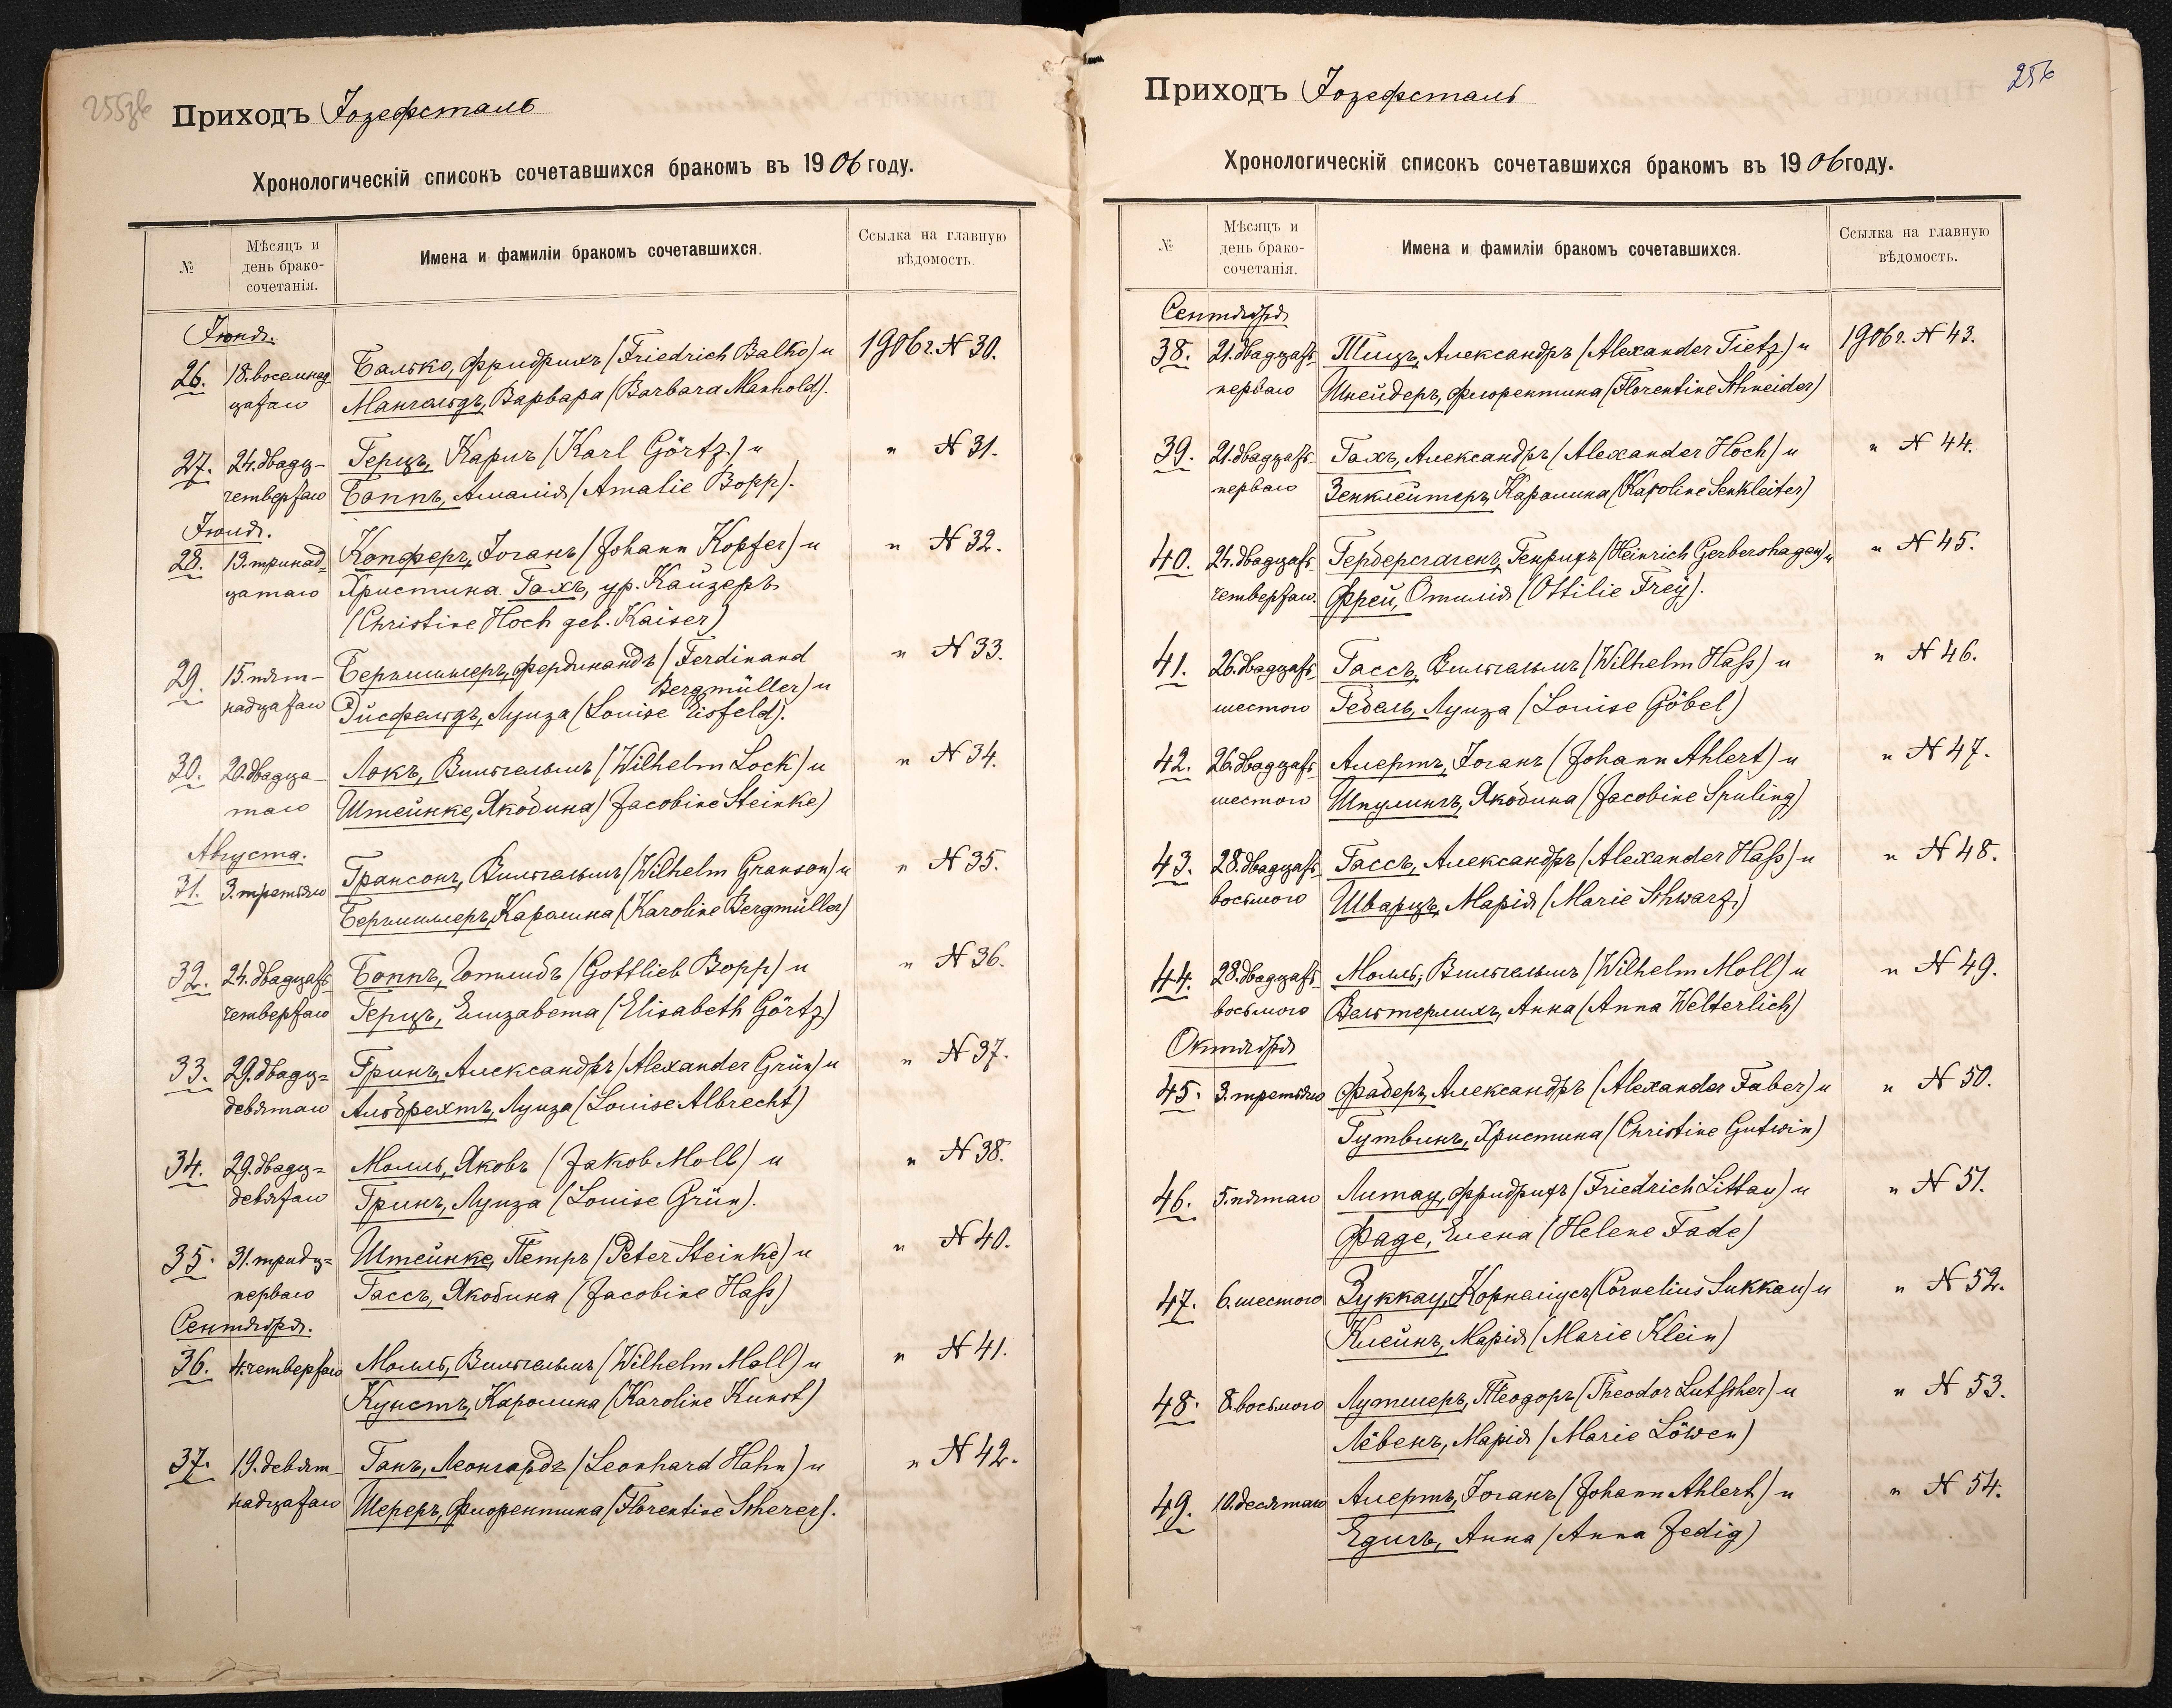 255об
Приходъ Іозефсталь
Хронологическій списокъ сочетавшихся бракомъ въ 1906 году.
№
Мѣсяцъ и
день брако-
сочетанія.
Имена и фамиліи бракомъ сочетавшихся.
Ссылка на главную
вѣдомость.
Іюня.
26. 18. восемнад Балько, Фридрихъ (Friedrich Balko) и 1906 г. N 30.
цатаго Мангольдъ, Варвара (Barbara Manhold).
27. 24. двадц- Герцъ, Карлъ (Karl Görtz) и " N 31.
четвертаго Боппъ, Амалія (Amalie Bopp).
Іюля.
28. 13. тринад= Копферъ, Іоганъ (Johann Kopfer) и " N 32.
цатаго Христина Гахъ, ур. Кайзеръ
(Christine Hoch geb. Kaiser)
29. 15. пят- Бергмиллеръ, Фердинандъ (Ferdinand " N 33.
Bergmüller) и
надцатаго Эйсфельдъ, Луиза (Louise Eisfeld).
30. 20. двадца- Локъ, Вильгельмъ (Wilhelm Lock) и " N 34.
таго Штейнке, Якобина (Jacobine Steinke)
Августа.
31. 3. третьяго Грансонъ, Вильгельмъ (Wilhelm Granson) и " N 35.
Бергмиллеръ, Каролина (Karoline Bergmüller)
32. 24. двадцать- Боппъ, Готлибъ (Gottlieb Bopp) и " N 36.
четвертаго Герцъ, Елизавета (Elisabeth Görtz)
33. 29. двадц= Гринъ, Александръ (Alexander Grün) и " N 37.
девятаго Альбрехтъ, Луиза (Louise Albrecht)
34. 29. двадц= Молль, Яковъ (Jakob Moll) и " N 38.
девятаго Гринъ, Луиза (Louise Grün).
35. 31. тридц= Штейнке, Петръ (Peter Steinke) и " N 40.
перваго Гассъ, Якобина (Jacobine Haß)
Сентября.
36. 4. четвертаго Молль, Вильгельмъ (Wilhelm Moll) и " N 41.
Кунстъ, Каролина (Karoline Kunst)
37. 19. девят- Ганъ, Леонгардъ (Leonhard Hahn) и " N 42.
надцатаго Шереръ, Флорентина (Florentine Scherer).
256
Приходъ Іозефсталь
Хронологическій списокъ сочетавшихся бракомъ въ 1906 году.
№
Мѣсяцъ и
день брако-
сочетанія.
Имена и фамиліи бракомъ сочетавшихся.
Ссылка на главную
вѣдомость.
Сентября
38. 21. двадцать- Тицъ, Александръ (Alexander Tietz) и 1906 г. N 43.
перваго Шнейдеръ, Флорентина (Florentine Schneider)
39. 21. двадцать- Гахъ, Александръ (Alexander Hoch) и " N 44.
перваго Зенклейтеръ, Каролина (Karoline Senkleiter)
40. 24. двадцать- Герберсгагенъ, Генрихъ (Heinrich Gerbershagen) и " N 45.
четвертаго. Фрей, Отилія (Ottilie Freÿ).
41. 26. двадцать- Гассъ, Вильгельмъ (Wilhelm Haß) и " N 46.
шестого Гебель, Луиза (Louise Göbel)
42. 26. двадцать- Алертъ, Іоганъ (Johann Ahlert) и " N 47.
шестого Шпулингъ, Якобина (Jacobine Spuling)
43. 28. двадцать- Гассъ, Александръ (Alexander Haß) и " N 48.
восьмого Шварцъ, Марія (Marie Schwarz)
44. 28. двадцать- Молль, Вильгельмъ (Wilhelm Moll) и " N 49.
восьмого Вельтерлихъ, Анна (Anna Welterlich)
Октября
45. 3. третьяго Фаберъ, Александръ (Alexander Faber) и " N 50.
Гутвинъ, Христина (Christine Gutwin)
46. 5. пятаго Литау, Фридрихъ (Friedrich Littau) и " N 51.
Фаде, Елена (Helene Fade)
47. 6. шестого Зуккау, Корнеліусъ (Cornelius Sukkau) и " N 52.
Клейнъ, Марія (Marie Klein)
48. 8. восьмого Лутшеръ, Теодоръ (Theodor Lutscher) и " N 53.
Лёвенъ, Марія (Marie Löwen)
49. 10. десятаго Алертъ, Іоганъ (Johann Ahlert) и " N 54.
Едигъ, Анна (Anna Jedig)